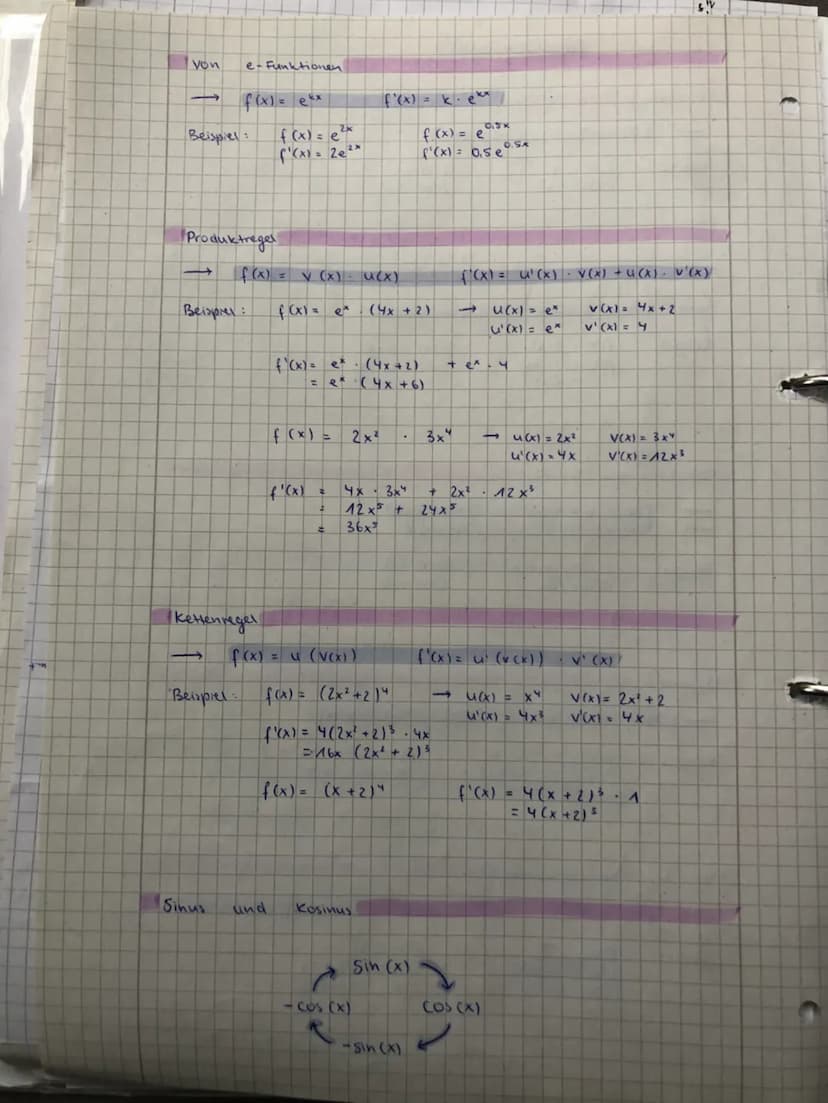 von e-Funktionen
→ f(x) = e^kx f'(x) = k · e^kx
Beispiel: f(x) = e^2x f(x) = e^0,5x
f'(x) = 2e^2x f'(x) = 0,5e^0.5x
Produktregel
→ f(x) = v(x) · u(x) f'(x) = u'(x) · v(x) + u(x) · v'(x)
Beispiel: f(x) = e^x · (4x + 2) → u(x) = e^x v(x) = 4x + 2
u'(x) = e^x v'(x) = 4
f'(x) = e^x · (4x+2) + e^x · 4
= e^x · (4x + 6)
f(x) = 2x² · 3x⁴ → u(x) = 2x² v(x) = 3x⁴
u'(x) = 4x v'(x) = 12x³
f'(x) = 4x · 3x⁴ + 2x² · 12x³
= 12x⁵ + 24x⁵
= 36x⁵
Kettenregel
→ f(x) = u (v(x)) f'(x) = u' (v(x)) · v'(x)
Beispiel: f(x) = (2x² + 2)⁴ → u(x) = x⁴ v(x) = 2x² + 2
u'(x) = 4x³ v'(x) = 4x
f'(x) = 4(2x² + 2)³ · 4x
= 16x (2x² + 2)³
f(x) = (x + 2)⁴ f'(x) = 4(x + 2)³ · 1
= 4(x+2)³
Sinus und Kosinus
Sin(x)
-cos(x) cos(x)
-sin(x)